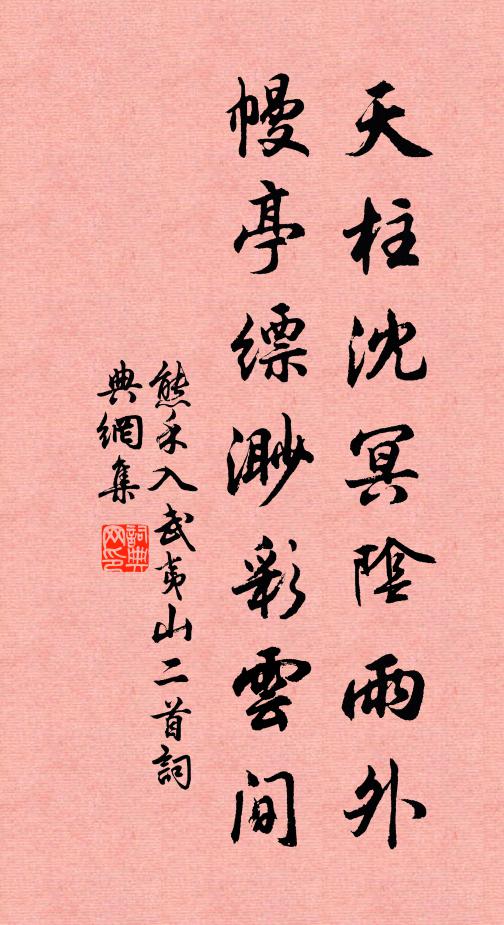 天柱沈冥陰雨外
幔亭縹渺彩雲間
熊禾入武夷山二首詞
典網集
詞典
网印